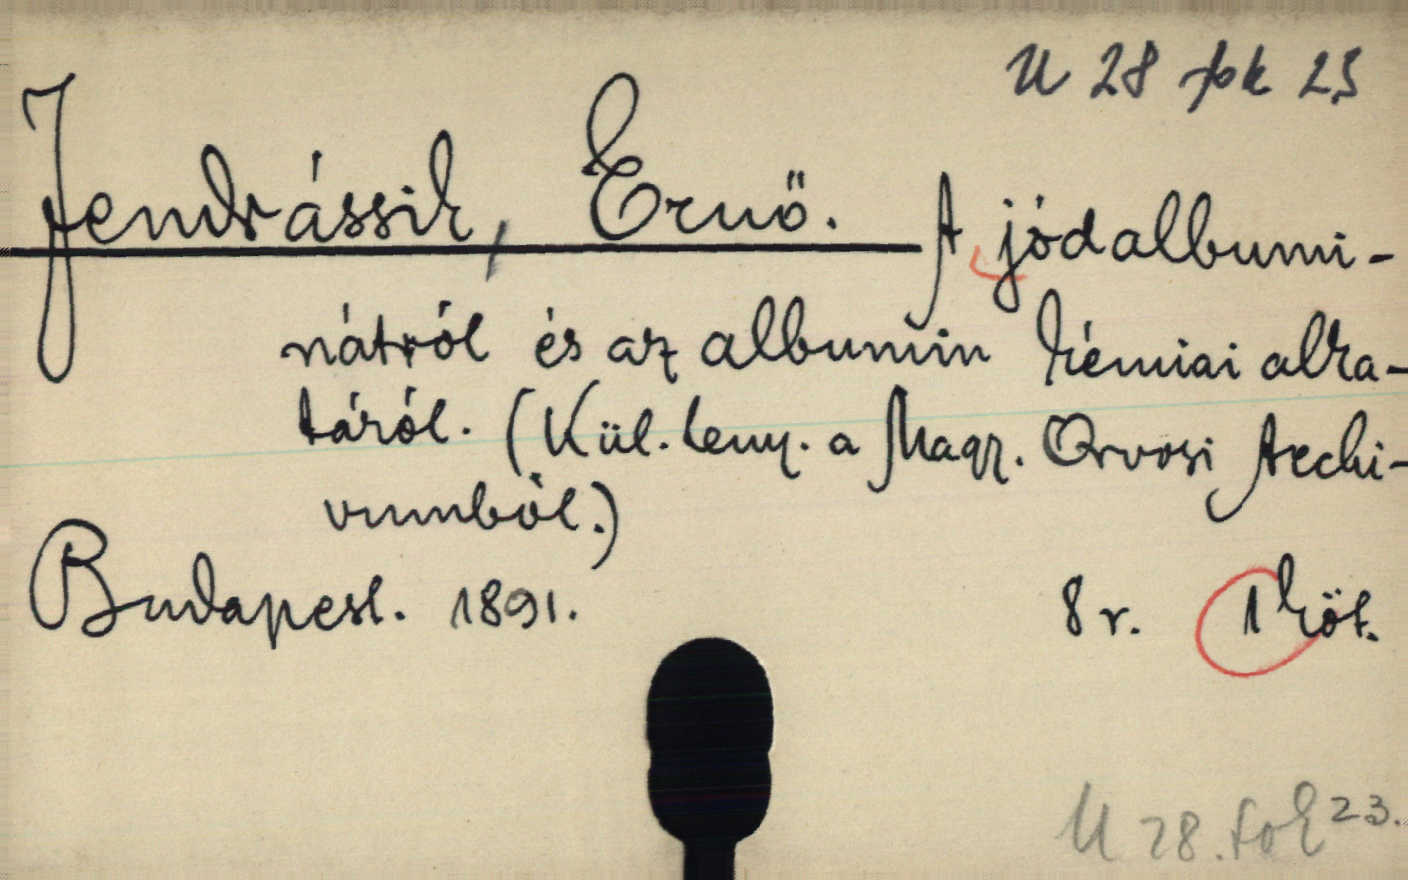 U 28 fok 23
Jendrássik, Ernő. A jódalbumi-
nátról és az albumin kémiai alka-
táról. (Kül. leny. a Magy. Orvosi Archi-
vumból.)
Budapest. 1891. 8 r. 1 köt.
U 28. fok 23.